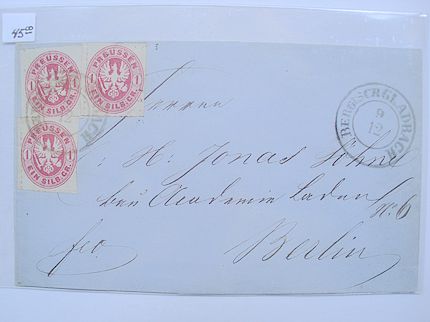 45 00
PREUSSEN
1 1
EIN SILB.GR.
PREUSSEN
1 1
EIN SILB.GR.
PREUSSEN
1 1
EIN SILB.GR.
BERGISCH GLADBACH
9
12
Herren
H. Jonas Söhne
bau Academie Laden
No. 6
fco
Berlin